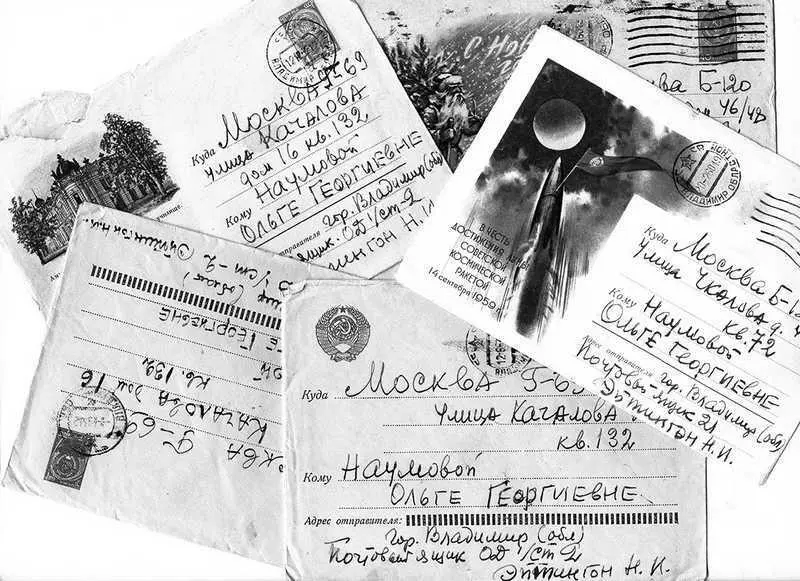 Куда Москва Г-69
улица Качалова
дом 16 кв. 132
Кому Наумовой
Ольге Георгиевне
отправителя гор. Владимир (обл)
ящик ОД 1/ст-2
Н. И.
С Но
Б-120
46/48
В ЧЕСТЬ
ДОСТИЖЕНИЯ ЛУНЫ
СОВЕТСКОЙ
КОСМИЧЕСКОЙ
РАКЕТОЙ
14 сентября 1959 г.
Куда Москва Б-
Улица Чкалова д.
кв. 72
Кому Наумовой
Ольге Георгиевне
Адрес отправителя: гор. Владимир (обл)
Почтовый ящик 21
Эйтингон Н. И.
ст-2
Георгиевне
кв. 132
Качалова дом 16
Г-69
Куда Москва Г-69
улица Качалова
кв. 132
Кому Наумовой
Ольге Георгиевне
Адрес отправителя:
гор. Владимир (обл)
Почтовый ящик ОД 1/ст 2
Эйтингон Н. И.